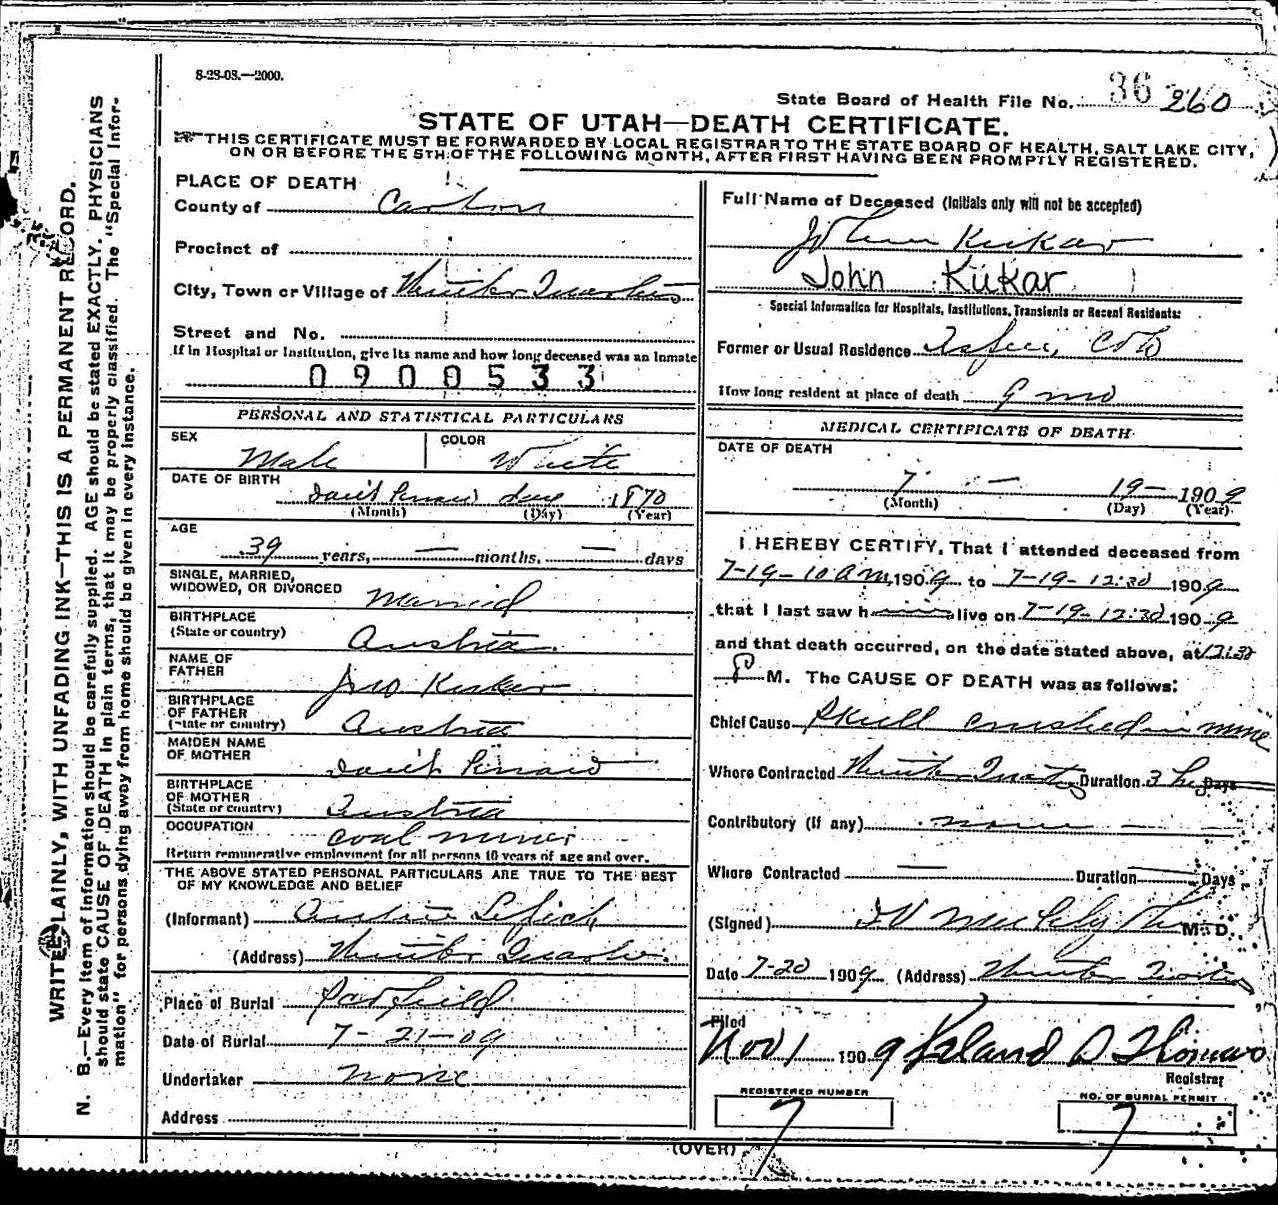 8-28-08.—2000.
State Board of Health File No. 36 260
STATE OF UTAH—DEATH CERTIFICATE.
THIS CERTIFICATE MUST BE FORWARDED BY LOCAL REGISTRAR TO THE STATE BOARD OF HEALTH, SALT LAKE CITY,
ON OR BEFORE THE 5TH OF THE FOLLOWING MONTH, AFTER FIRST HAVING BEEN PROMPTLY REGISTERED.
WRITE PLAINLY, WITH UNFADING INK—THIS IS A PERMANENT RECORD.
N. B.—Every item of information should be carefully supplied. AGE should be stated EXACTLY. PHYSICIANS
should state CAUSE OF DEATH in plain terms, that it may be properly classified. The "Special Infor-
mation" for persons dying away from home should be given in every instance.
PLACE OF DEATH
County of Carbon
Precinct of
City, Town or Village of
Street and No.
If in Hospital or Institution, give its name and how long deceased was an inmate
0900533
PERSONAL AND STATISTICAL PARTICULARS
SEX Male COLOR White
DATE OF BIRTH don't know day 1870
(Month) (Day) (Year)
AGE
39 years, — months, — days
SINGLE, MARRIED,
WIDOWED, OR DIVORCED Married
BIRTHPLACE
(State or country) Austria
NAME OF
FATHER Jno Kukar
BIRTHPLACE
OF FATHER
(State or country) Austria
MAIDEN NAME
OF MOTHER don't know
BIRTHPLACE
OF MOTHER
(State or country) Austria
OCCUPATION coal miner
Return remunerative employment for all persons 10 years of age and over.
THE ABOVE STATED PERSONAL PARTICULARS ARE TRUE TO THE BEST
OF MY KNOWLEDGE AND BELIEF
(Informant)
(Address)
Place of Burial
Date of Burial 7-21-09
Undertaker none
Address
Full Name of Deceased (Initials only will not be accepted)
John Kukar
John Kukar
Special Information for Hospitals, Institutions, Transients or Recent Residents:
Former or Usual Residence
How long resident at place of death 9 mo
MEDICAL CERTIFICATE OF DEATH
DATE OF DEATH
7 — 19 — 1909
(Month) (Day) (Year)
I HEREBY CERTIFY, That I attended deceased from
7-19-10 am, 1909 to 7-19-12:30 1909
that I last saw h alive on 7-19-12:30 1909
and that death occurred, on the date stated above, at 12:30
P M. The CAUSE OF DEATH was as follows:
Chief Cause Skull crushed in mine
Where Contracted Duration 3 hrs Days
Contributory (if any) none
Where Contracted — Duration Days
(Signed) M. D.
Date 7-20 1909 (Address)
Filed
Nov 1 1909 Leland D Thomas
Registrar
REGISTERED NUMBER
7
NO. OF BURIAL PERMIT
7
(OVER)